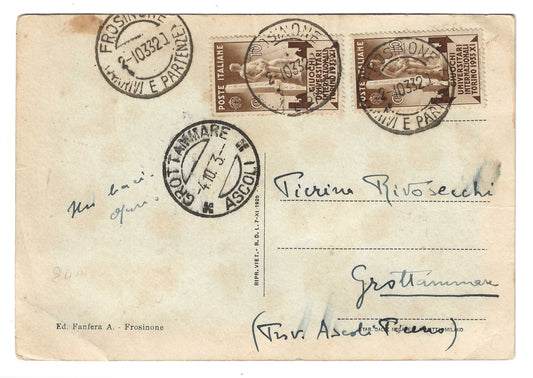 FROSINONE
2-10332
ARRIVI E PARTENZE
POSTE ITALIANE
GIUOCHI
UNIVERSITARI
INTERNAZIONALI
TORINO 1933 XI
FROSINONE
2-10332
POSTE ITALIANE
GIUOCHI
UNIVERSITARI
INTERNAZIONALI
TORINO 1933 XI
FROSINONE
2-10332
ARRIVI E PARTENZE
GROTTAMMARE
4.10.3
ASCOLI
Un baci
RIPR. VIET. - R. D. L. 7-XI 1925
Pierina Rivosecchi
Grottammare
(Prov. Ascoli Piceno)
Ed. Fanfera A. - Frosinone
MILANO